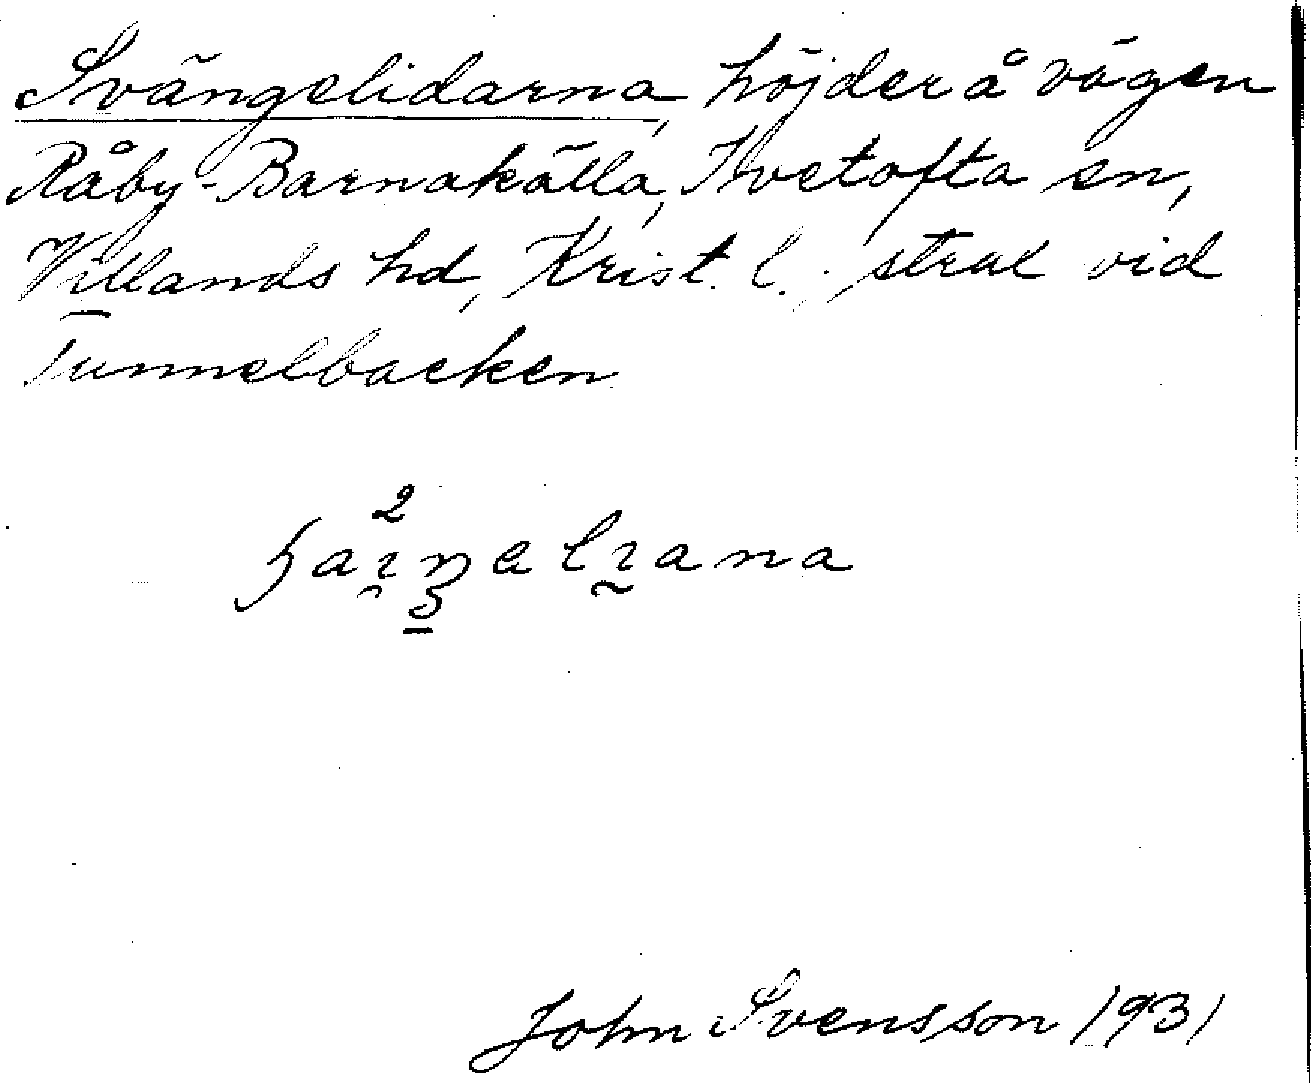 Svängelidarna, höjder å vägen
Råby-Barnakälla, Ivetofta sn,
Villands hd, Krist. l., strax vid
Tunnelbacken
John Svensson 1931